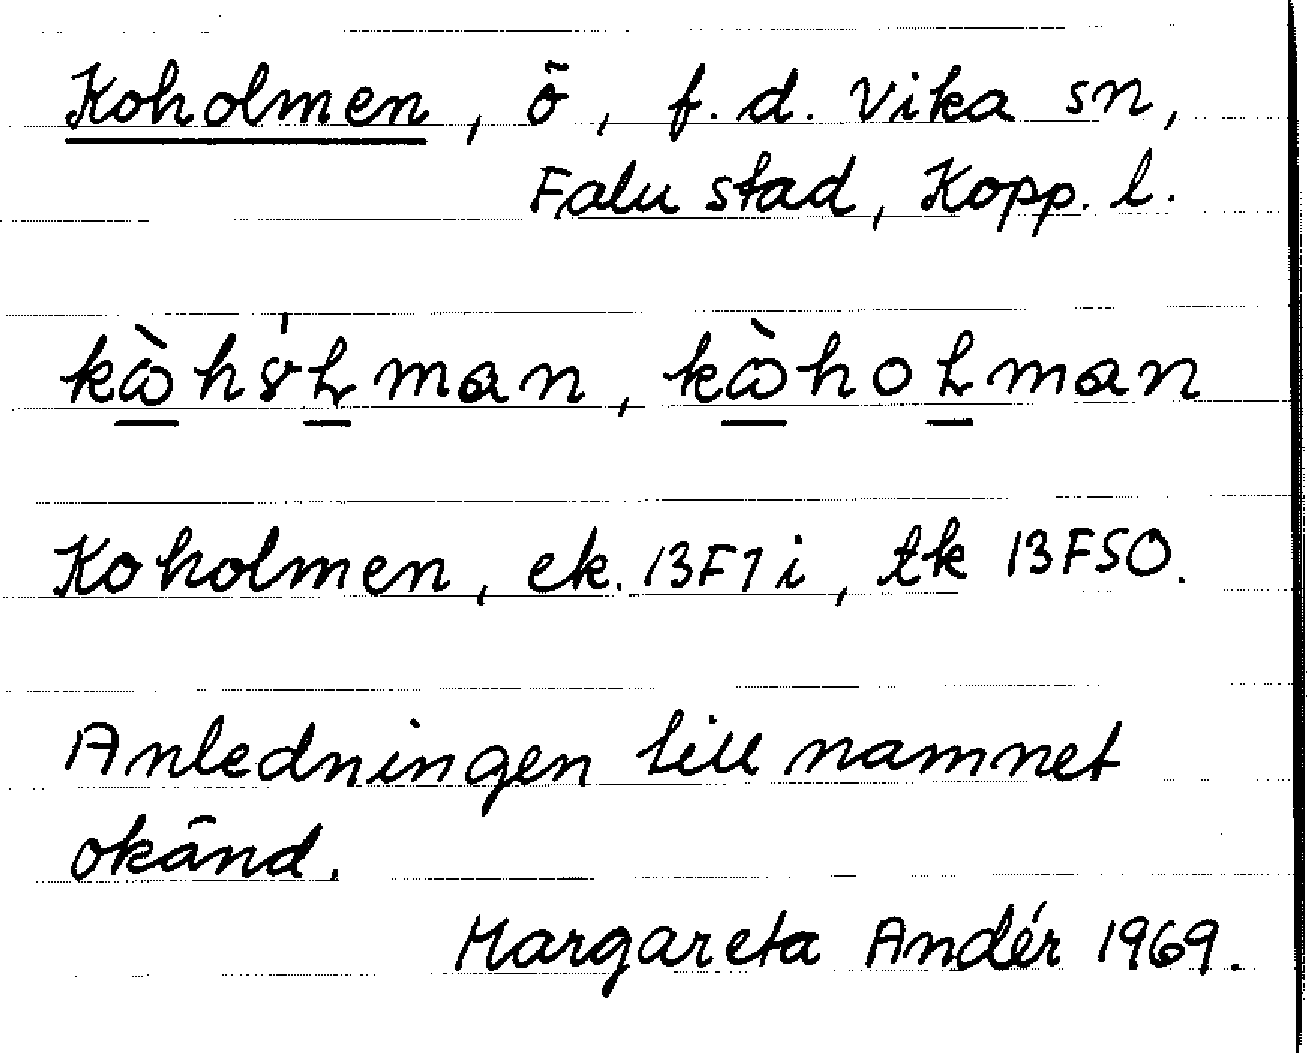 Koholmen, ö, f.d. Vika sn,
Falu stad, Kopp. l.
Koholmen, ek. 13F1i, tk 13FSO.
Anledningen till namnet
okänd.
Margareta Andér 1969.